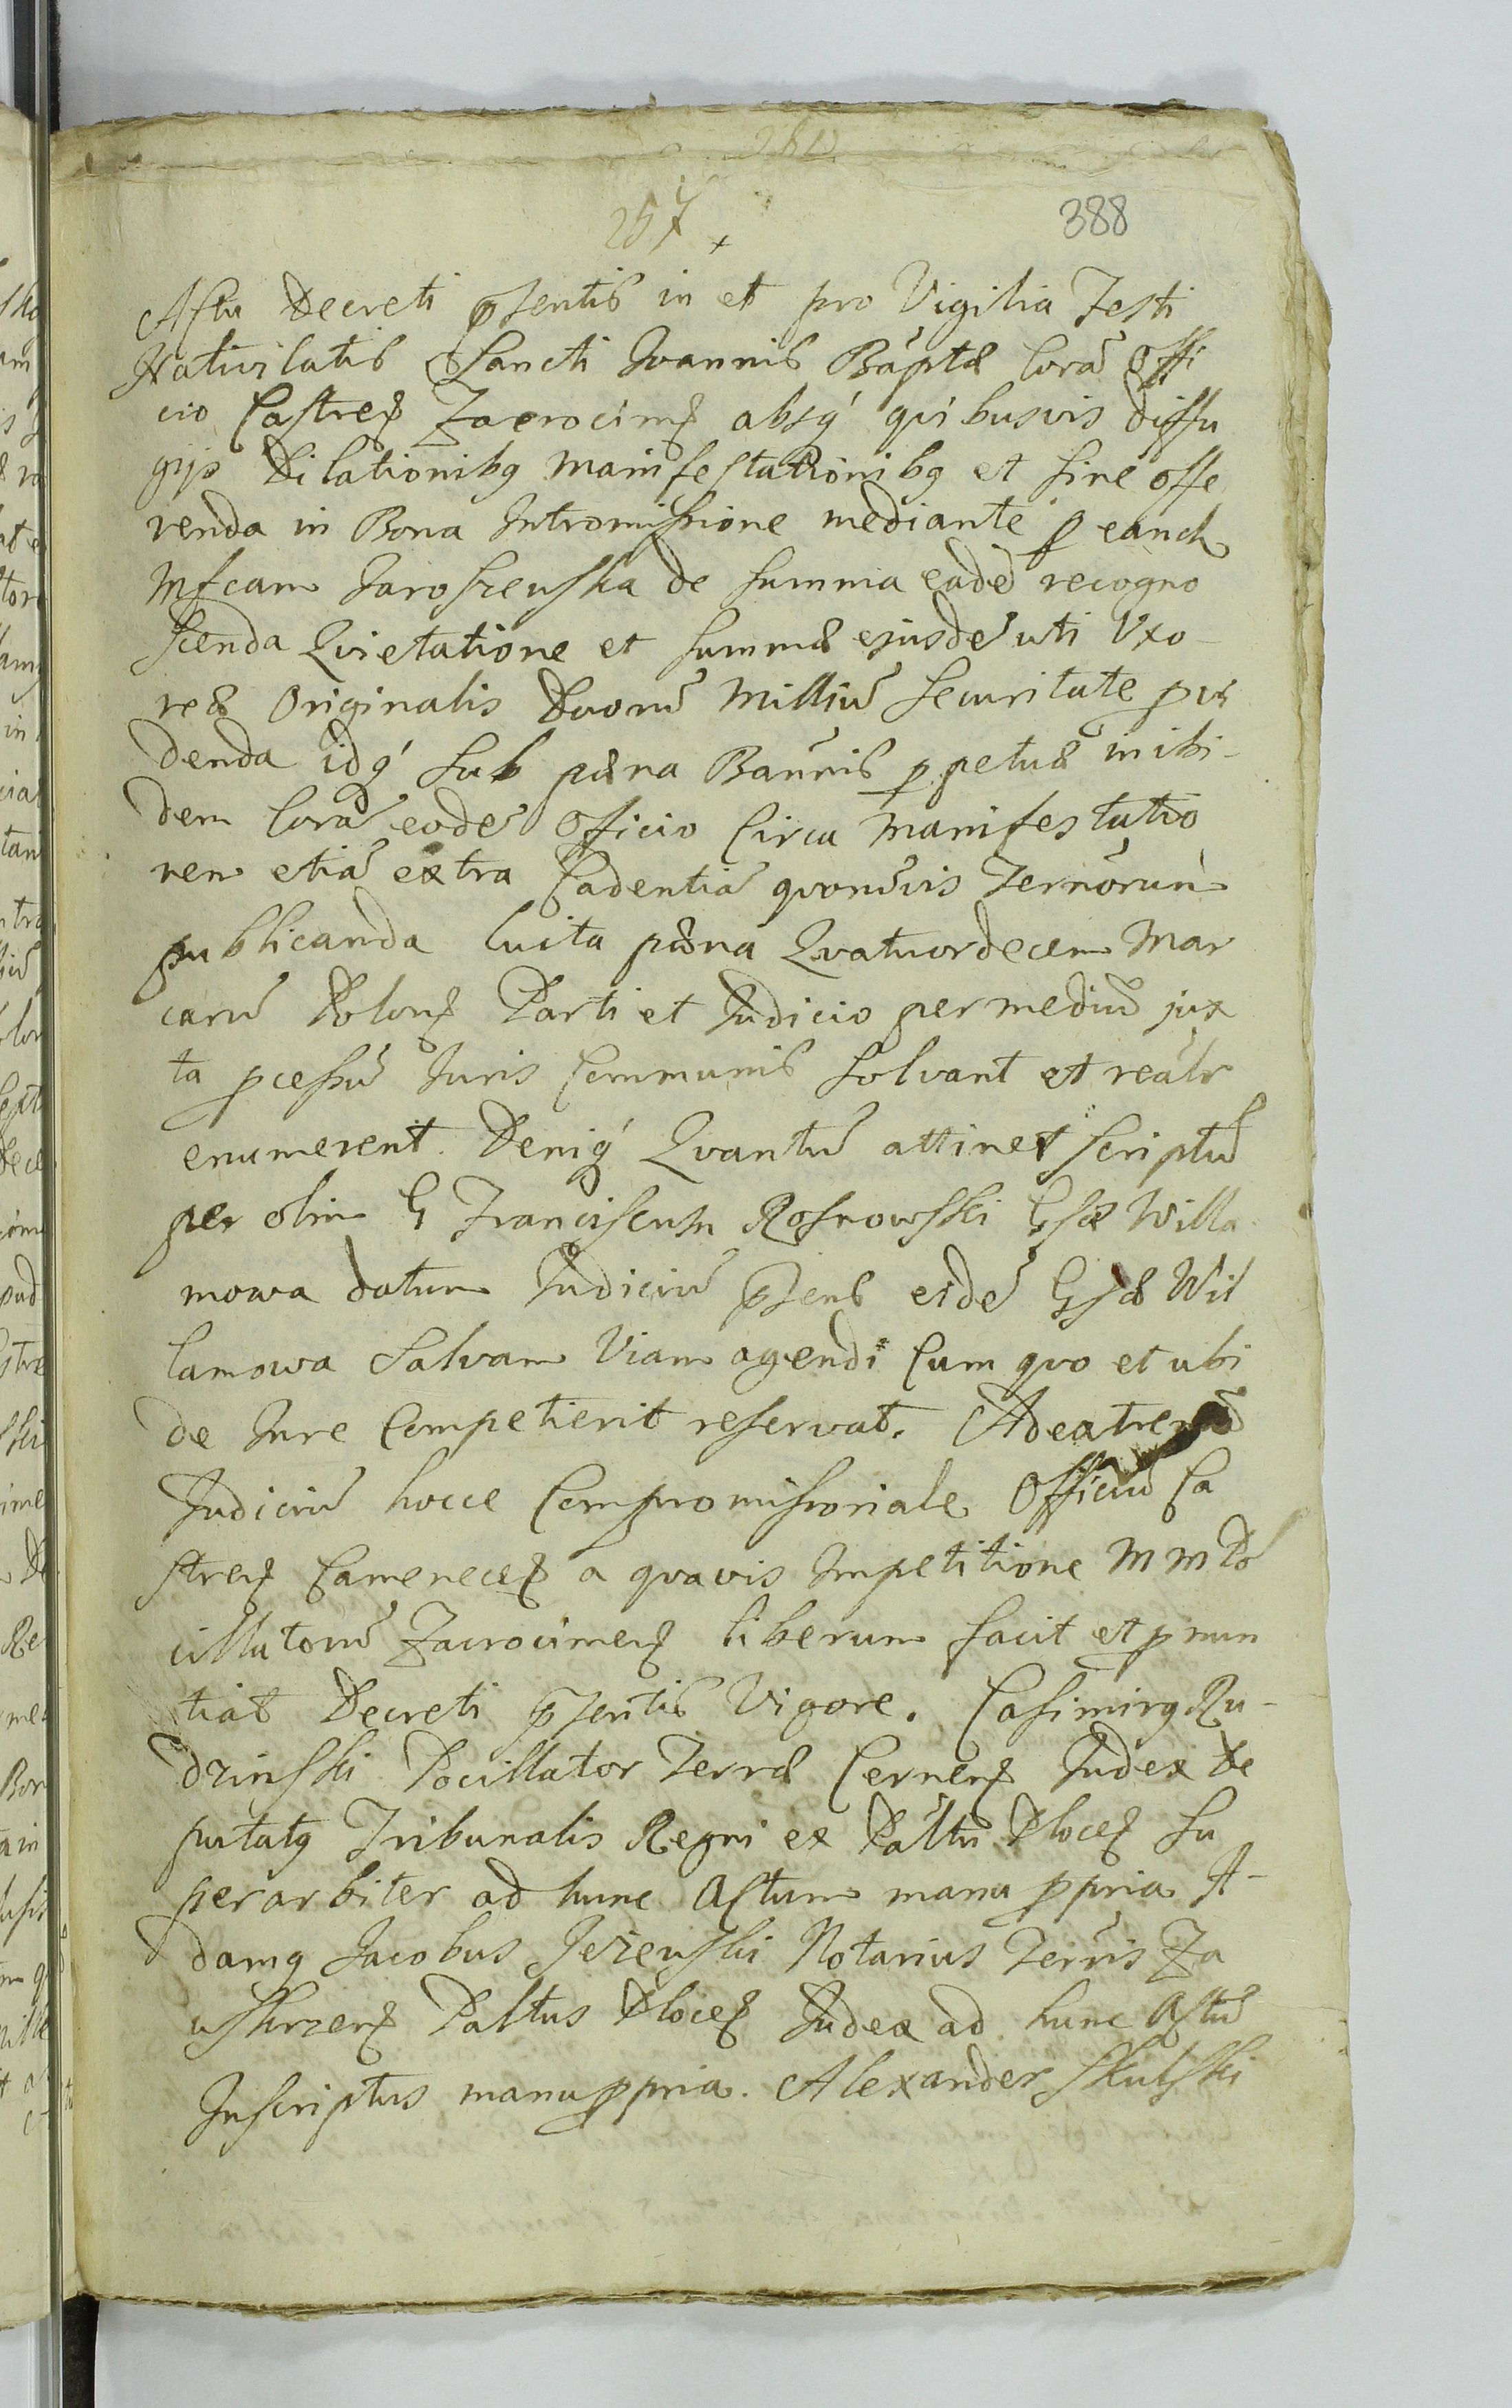 257
388
Actu Decreti pſentis in et pro Vigilia Festi
Nativitatis Sancti Joannis Baptæ Corã Offi
cio Castreꝭ Zacrocimꝭ absq́ quibusvis diffu
gijs Dilationibꝗ Manifestationibꝗ et sine offe
renda in Bona Intromissione mediante ꝑ eand
Mfcam Jaroszewska de summa eadẽ recogno
scenda Qvietatione et summæ ejusdẽ uti Uxo-
reæ Originalis Duorũ Milliũ securitate ꝓvi
denda idq́ sub pæna Bannis ꝑpetuæ in ibi-
dem Corã eodẽ Officio Circa Manifestatio
nem etiã extra Cadentiã quorũvis Terñorum
publicanda luita pæna Qvatuordecem Mar
carũ Polonꝭ Parti et Judicio per mediũ jux
ta ꝓcessũ Juris Communis solvant et realr
enumerent. Deniq́ Qvantũ attinet scriptũ
per olim G Franciscum Rosnowski Gsæ Willa
mowa datum Judiciũ pſens eidẽ Gsæ Wil
lamowa Salvam Viam agendi Cum quo et ubi
de Jure Competierit reservat. Ad extremũ
Judiciũ hocce Compromissoriale Officiũ Ca
streꝭ Camenecꝭ a qvavis Impetitione MM Po
cillatorũ Zacrocimenꝭ liberum facit et ꝓnun
tiat Decreti pſentis Vigore. Casimirꝗ Ru-
dzinski Pocillator Terræ Cernenꝭ Judex De
putatꝗ Tribunalis Regni ex Paltũ Plocꝭ Su
perarbiter ad hunc Actum manu ꝓpria A-
damꝗ Jacobus Jezewski Notarius Terris Za
wskrzenꝭ Paltus Plocꝭ Judex ad hunc Actũ
Inscriptus manu ꝓpria. Alexander Skulski